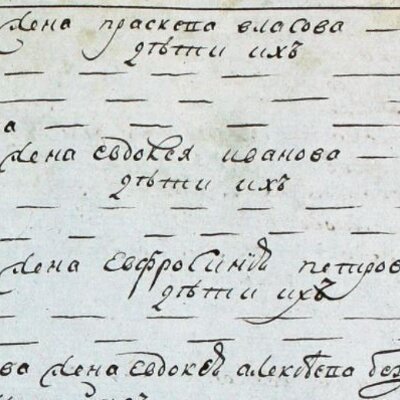 жена праскева власова
дѣти ихъ
а
жена евдокея иванова
дѣти ихъ
жена евфросиния петров
дѣти ихъ
ва жена евдокея алексѣева без